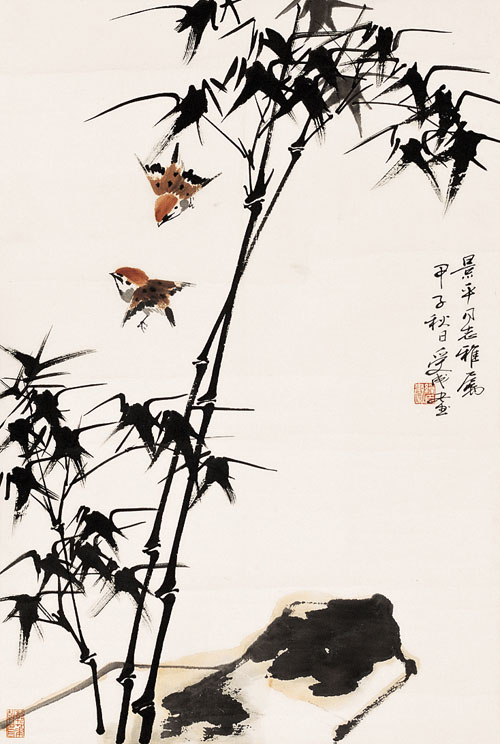 景平同志雅属
甲子秋日受成画